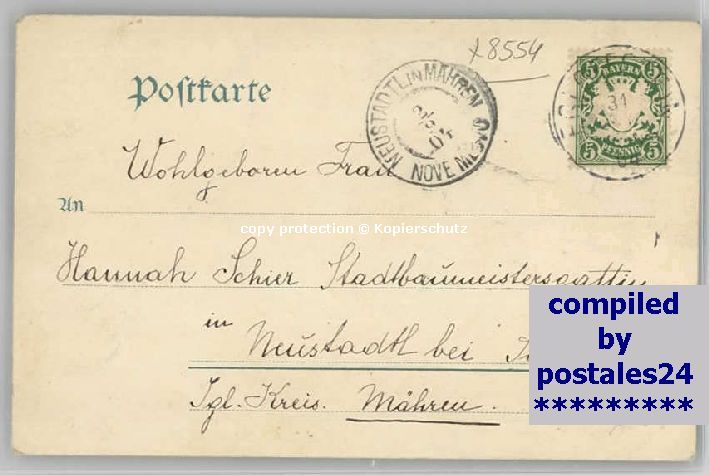 x8554
Postkarte
NEUSTADTL IN MÄHREN
2/5
04
NOVE MĚSTO
BAYERN
5 5
31
5 5
PFENNIG
Wohlgeboren Frau
An
copy protection © Kopierschutz
Hannah Schier Stadtbaumeistersgattin
in
Neustadtl bei
Igl. Kreis. Mähren.
compiled
by
postales24
*********